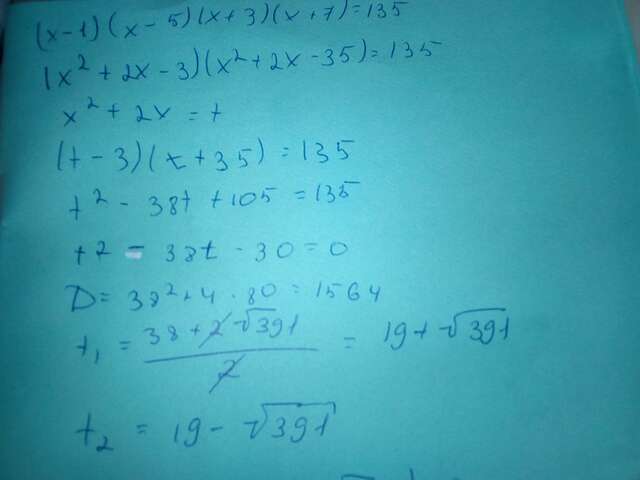 (x-1)(x-5)(x+3)(x+7)=135
(x²+2x-3)(x²+2x-35)=135
x²+2x=t
(t-3)(t+35)=135
t²-38t+105=135
t2-38t-30=0
D=38²+4·80=1564
t₁=(38+2√391)/2=19+√391
t₂=19-√391